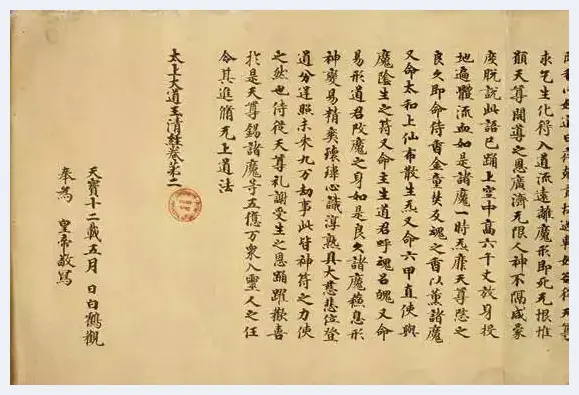 求乞生化得入道流遠離魔形即死无恨惟
願天尊開導之恩廣濟无限人神不隔咸蒙
度脫說此語已踊上空中高六千丈放身投
地遍體流血如是諸魔一時悉靡天尊愍之
良久即命侍香金童焚反魂之香以薰諸魔
又命太和上仙布散生炁又命六甲直使與
魔陰生之符又命主生道君呼魂召魄又命
易形道君改魔之身如是良久諸魔蘓息形
神變易精爽瓌瑋心識淳熟具大慈悲位登
道分逆照未来九万劫事此皆神符之力使
之然也侍從天尊礼謝受生之恩踊躍歡喜
於是天尊錫諸魔等五億万衆入靈人之任
令其進脩无上道法
太上大道玉清經卷第二
天寶十二載五月 日白鶴觀
奉爲 皇帝敬寫